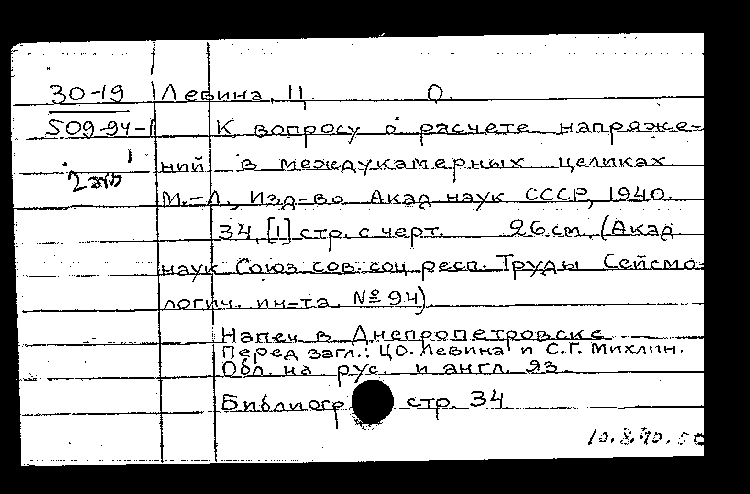 30-19 Левина, Ц. О.
509-94-1 К вопросу о расчете напряже-
2 экз ний в междукамерных целиках
М.-Л., Изд-во Акад наук СССР, 1940.
34, [1] стр. с черт. 26 см. (Акад
наук Союз сов. соц респ. Труды Сейсмо-
логич. ин-та. № 94)
Напеч в Днепропетровске
Перед загл.: Ц.О. Левина и С.Г. Михлин.
Обл. на рус. и англ. яз.
Библиогр стр. 34